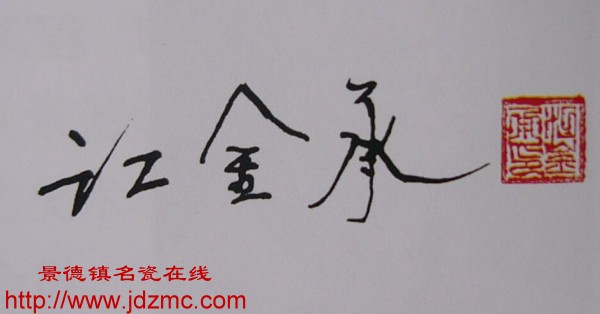 江金承
江金承印
景德镇名瓷在线
http://www.jdzmc.com